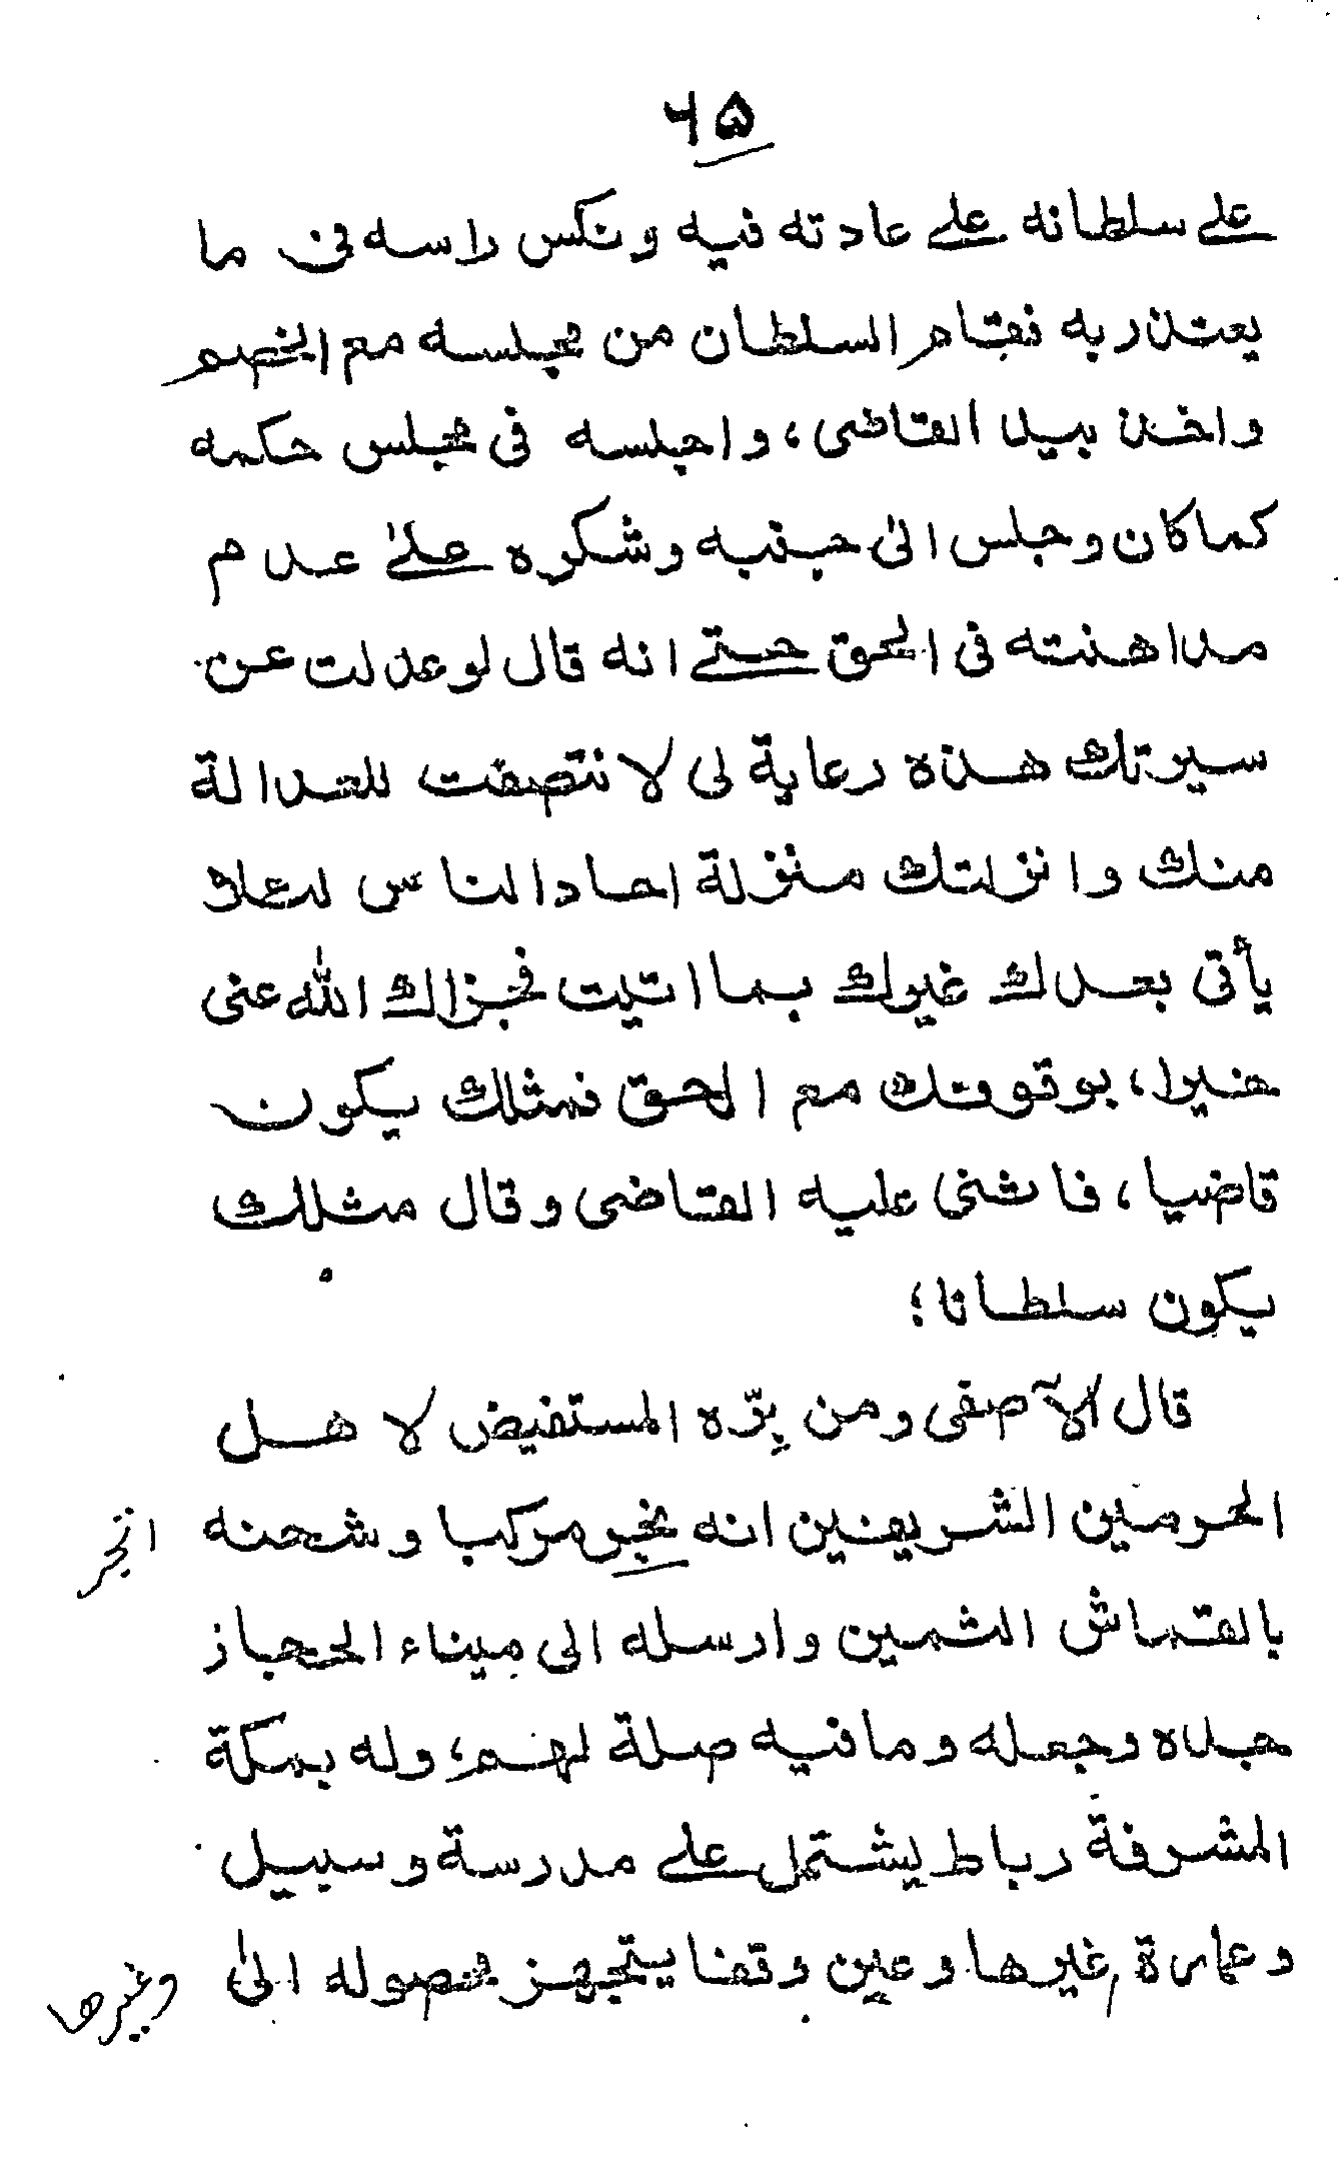 ۶۵
علے سلطانه علے عادته فيه ونكس راسه فى ما
يعتذر به فقام السلطان من مجلسه مع الخصم
واخذ بيد القاضى، واجلسه فى مجلس حكمه
كما كان وجلس الى جنبه وشكره على عدم
مداهنته فى الحق حتے انه قال لو عدلت عن
سيرتك هذه رعاية لى لانتصفت للعدالة
منك وانزلتك منزلة احاد الناس لدعلا
يأتى بعدك غيرك بما اتيت فجزاك الله عنى
خيرا، بوقوفك مع الحق فمثلك يكون
قاضيا، فاثنى عليه القاضى وقال مثلك
يكون سلطانا؛
قال الآصفى ومن بِرّه المستفيض لا هل
الحرمين الشريفين انه نجر مركبا وشحنه
اتجر
بالقماش الثمين وارسله الى ميناء الحجاز
جده وجعله وما فيه صلة لهم، وله بمكة
المشرفة رباط يشتمل علے مدرسة وسبيل
وعمارة غيرها وعين وقفا يتجهز محصوله الى
وغيرها